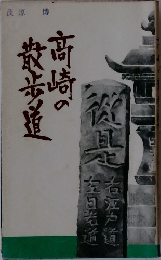 高崎の
散歩道
從是
右江戸道
左日光道